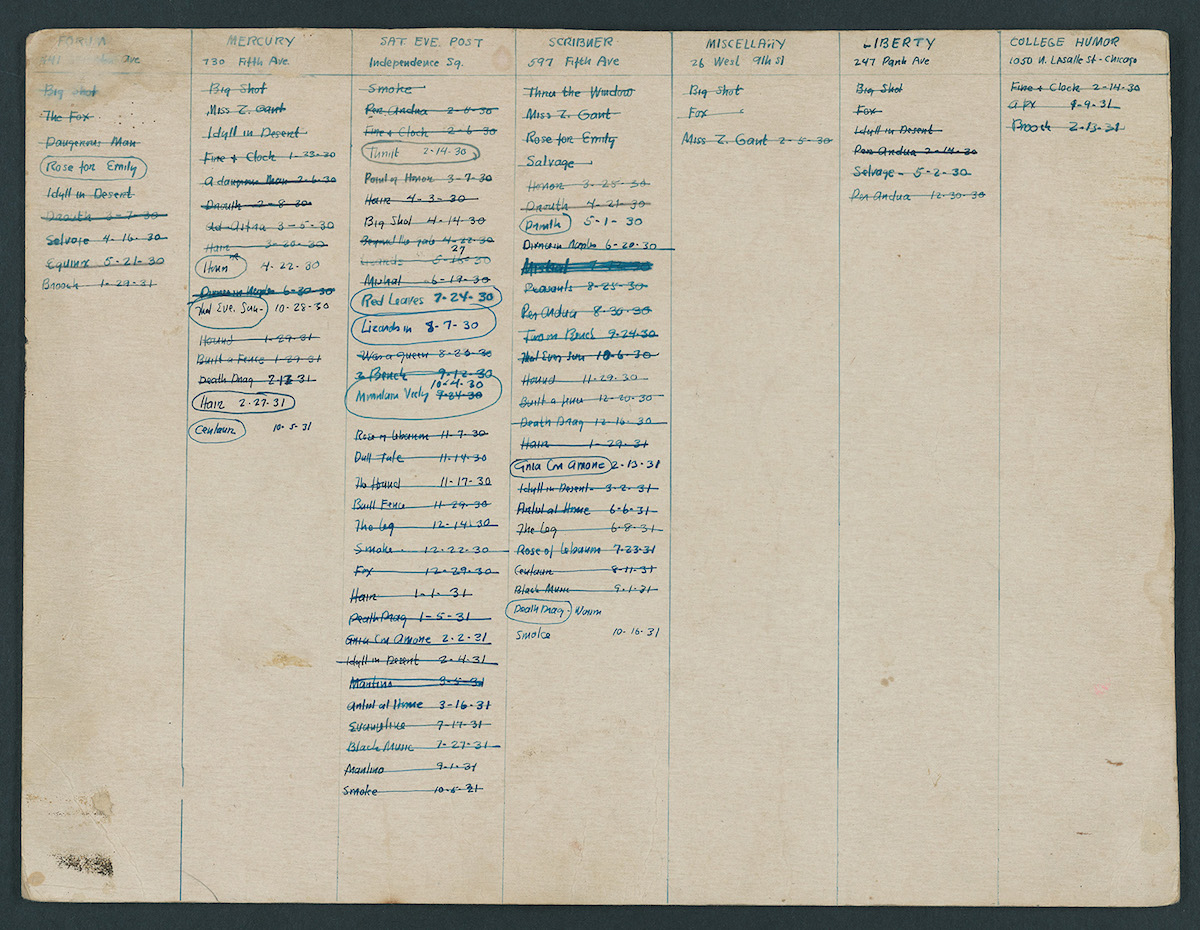 FORUM
Ave
Big Shot
The Fox
Dangerous Man
Rose for Emily
Idyll in Desert
Drouth 3-7-30
Selvage 4-16-30
Equinox 5-21-30
Brooch 1-29-31
MERCURY
730 Fifth Ave.
Big Shot
Miss Z. Gant
Idyll in Desert
Fire & Clock 1-23-30
A dangerous Man 2-6-30
Drouth 2-8-30
Ad Astra 3-5-30
Hair 3-20-30
4-22-30
Divorce in Naples 6-30-30
That Eve. Sun- 10-28-30
Hound 1-29-31
Built a Fence 1-29-31
Death Drag 2-12-31
Hair 2-27-31
Centaur 10-5-31
SAT. EVE. POST
Independence Sq.
Smoke
Per Andua 2-5-30
Fire & Clock 2-6-30
Thrift 2-14-30
Point of Honor 3-7-30
Hair 4-3-30
Big Shot 4-14-30
Beyond the gate 4-22-30
27
Lizards
Mistral 6-19-30
Red Leaves 7-24-30
Lizards in 8-7-30
Was a queen 8-20-30
2 Bench 9-12-30
10-4-30
Mountain Victy 9-24-30
Rose of Lebanon 11-7-30
Dull Tale 11-14-30
The Hound 11-17-30
Built Fence 11-29-30
The Leg 12-14-30
Smoke 12-22-30
Fox 12-29-30
Hair 1-1-31
Death Drag 1-5-31
Gnia Cm Amone 2-2-31
Idyll in Desert 2-4-31
Mantino 3-5-31
Artist at Home 3-16-31
Evangeline 7-17-31
Black Music 7-27-31
Mantino 9-1-31
Smoke 10-5-31
SCRIBNER
597 Fifth Ave
Thru the Window
Miss Z. Gant
Rose for Emily
Selvage
Honor 3-25-30
Drouth 4-21-30
Drouth 5-1-30
Divorce in Naples 6-20-30
Mistral
Peasants 8-25-30
Per Andua 8-30-30
9-24-30
That Even Sun 10-6-30
Hound 11-29-30
Built a fence 12-20-30
Death Drag 12-16-30
Hair 1-29-31
Gnia Cm Amone 2-13-31
Idyll in Desert- 3-2-31
Artist at Home 6-6-31
The Leg 6-8-31
Rose of Lebanon 7-23-31
Centaur 8-11-31
Black Music 9-1-31
Death Drag-
Smoke 10-16-31
MISCELLANY
26 West 9th St
Big Shot
Fox
Miss Z. Gant 2-5-30
LIBERTY
247 Park Ave
Big Shot
Fox
Idyll in Desert
Per Andua 2-14-30
Selvage - 5-2-30
Per Andua 12-30-30
COLLEGE HUMOR
1050 N. LaSalle St - Chicago
Fire & Clock 2-14-30
1-9-31
Brooch 2-13-31